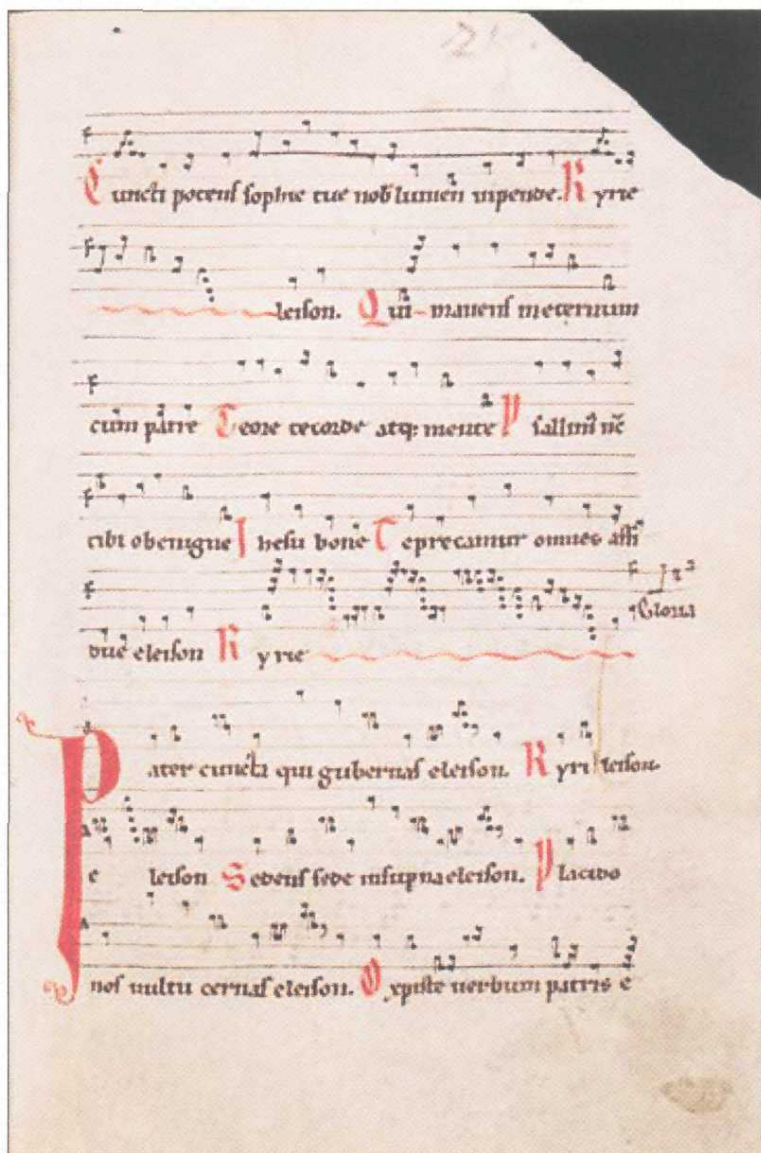 Cuncti potens sophie tue nob lumen inpende. Kyrie
leison. Qui manens ineternum
cum patre Teore tecorde atq; mente Psallim nc
tibi obenigne Ihesu bone Teprecamur omnes assi
due eleison Kyrie Gloria
Pater cuncta qui gubernas eleison. Kyri leison
e leison Sedens sede insupna eleison. Placido
nos uultu cernas eleison. O xpiste uerbum patris e